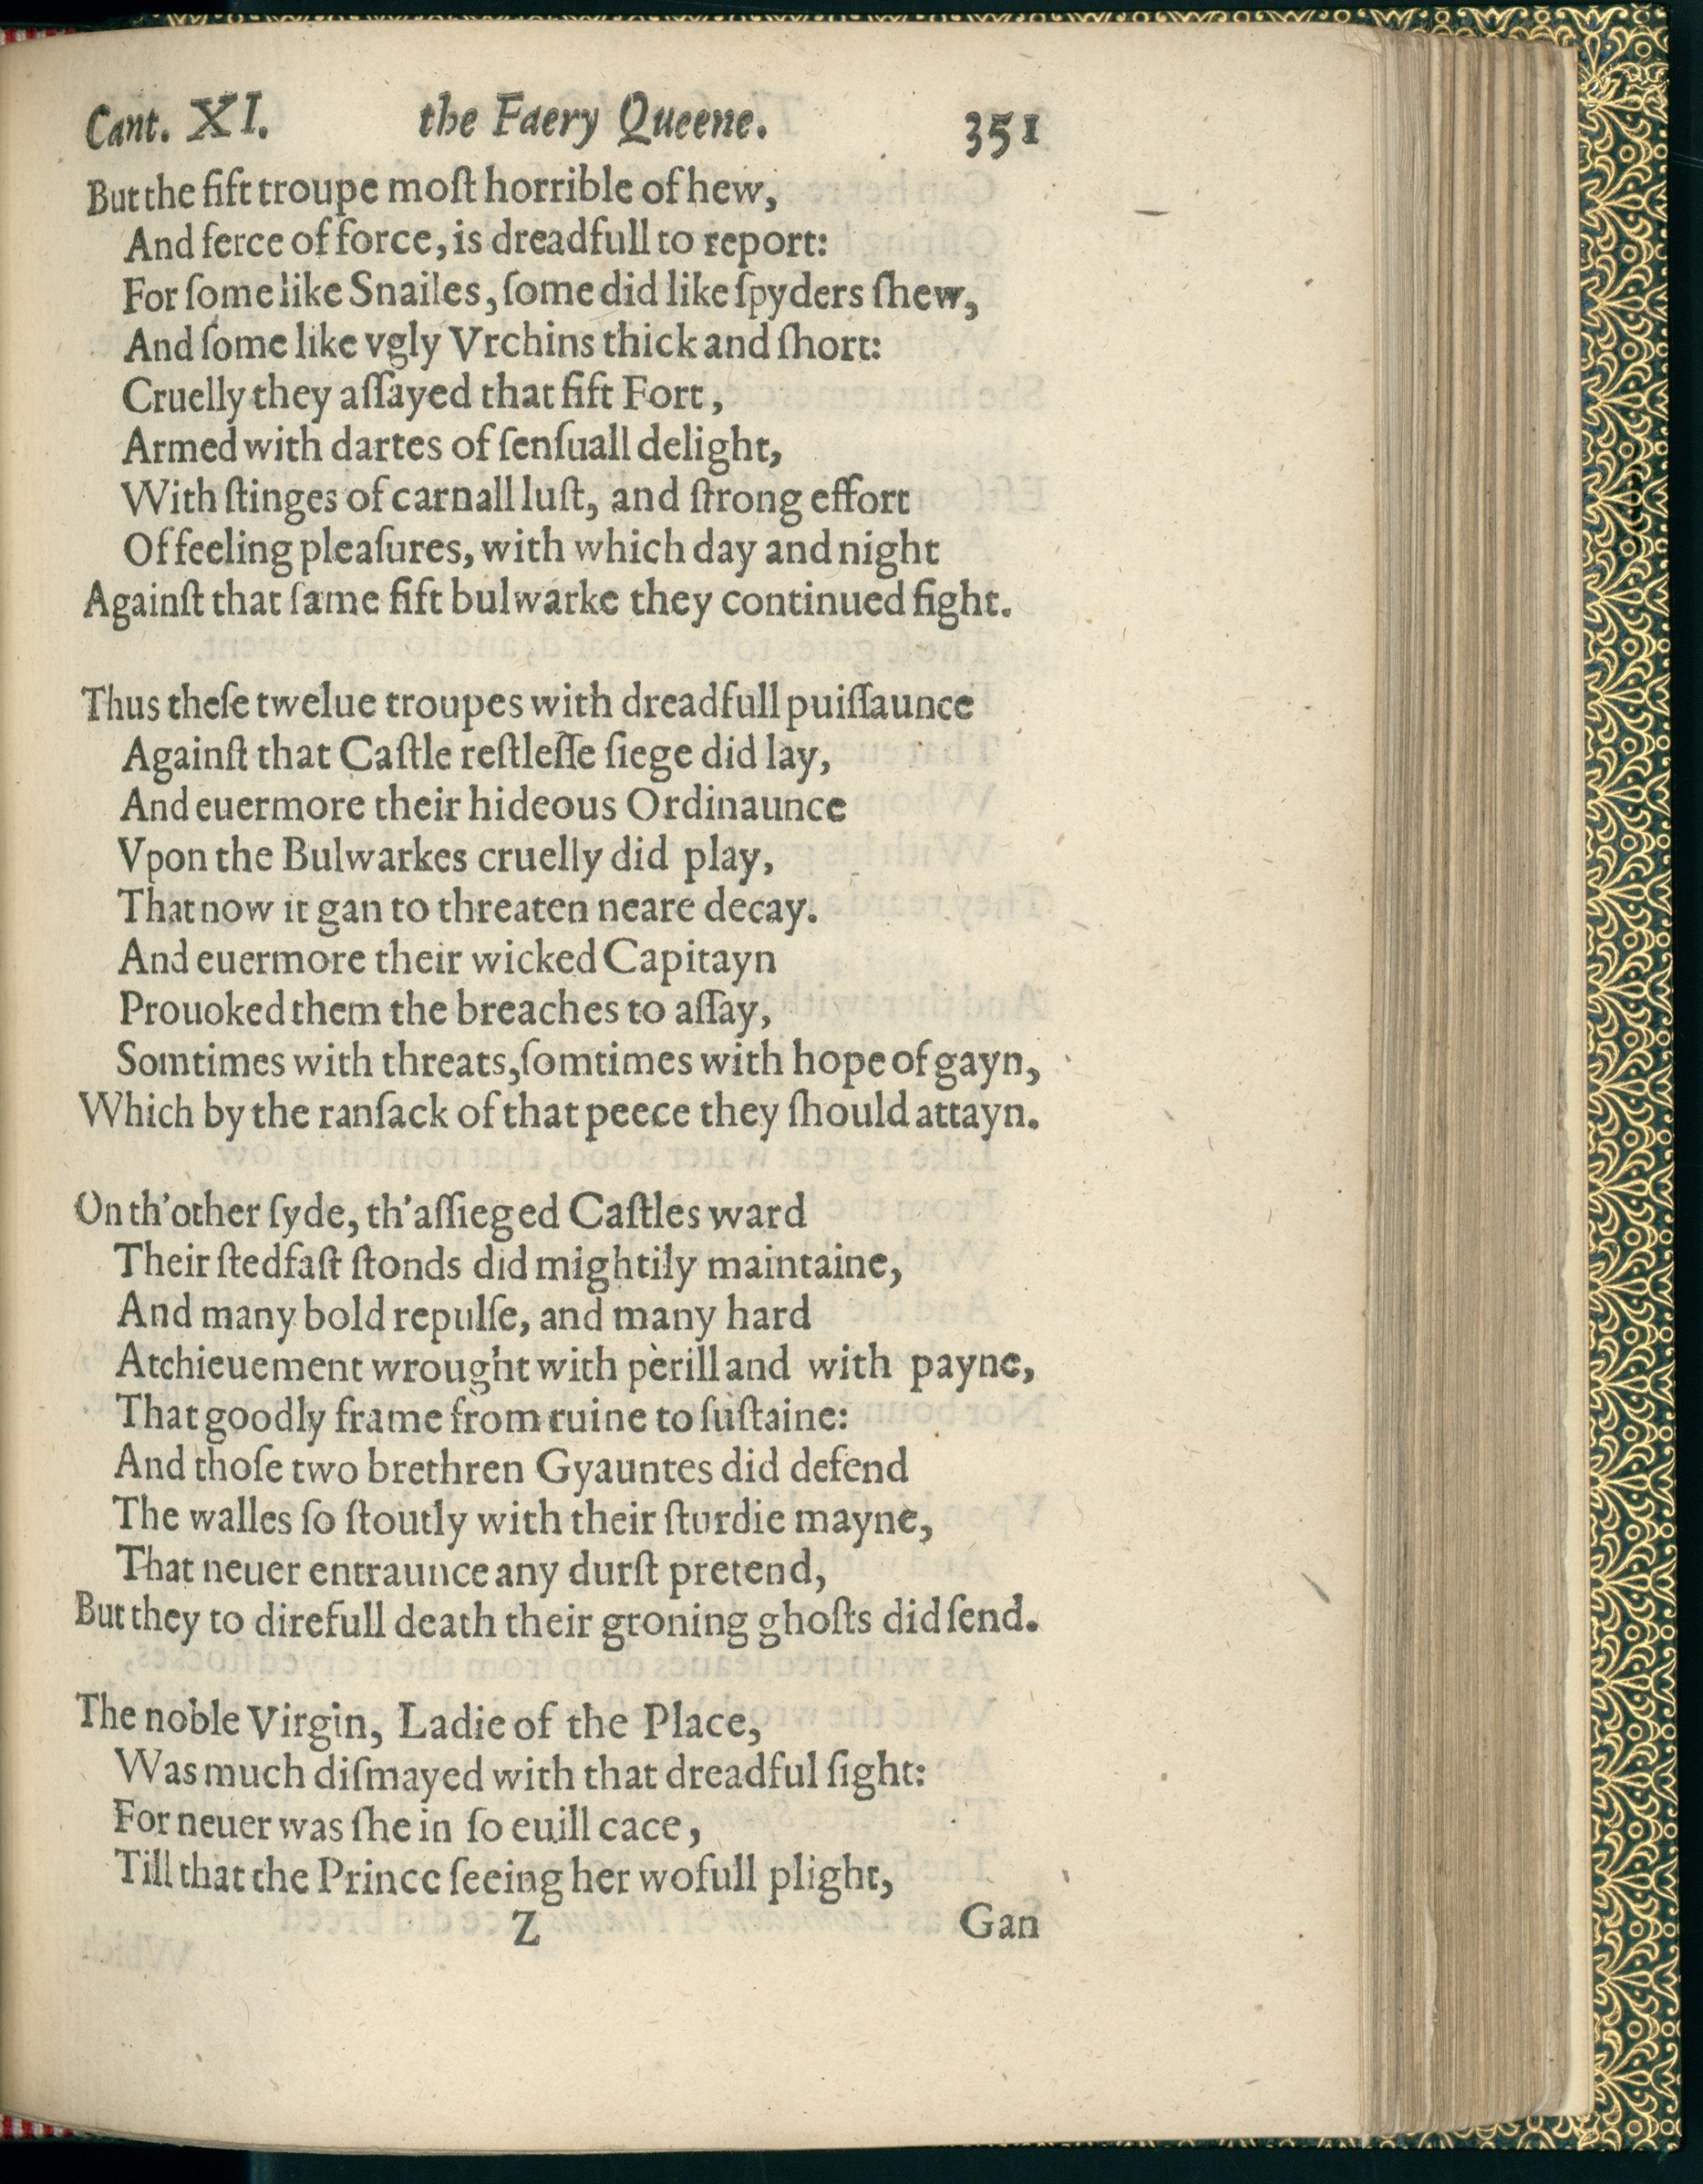 Cant. XI. the Faery Queene. 351
But the fift troupe moſt horrible of hew,
And ferce of force, is dreadfull to report:
For ſome like Snailes, ſome did like ſpyders ſhew,
And ſome like vgly Vrchins thick and ſhort:
Cruelly they aſſayed that fift Fort,
Armed with dartes of ſenſuall delight,
With ſtinges of carnall luſt, and ſtrong effort
Of feeling pleaſures, with which day and night
Againſt that ſame fift bulwarke they continued fight.
Thus theſe twelue troupes with dreadfull puiſſaunce
Againſt that Caſtle reſtleſſe ſiege did lay,
And euermore their hideous Ordinaunce
Vpon the Bulwarkes cruelly did play,
That now it gan to threaten neare decay.
And euermore their wicked Capitayn
Prouoked them the breaches to aſſay,
Somtimes with threats, ſomtimes with hope of gayn,
Which by the ranſack of that peece they ſhould attayn.
On th'other ſyde, th'aſſieged Caſtles ward
Their ſtedfaſt ſtonds did mightily maintaine,
And many bold repulſe, and many hard
Atchieuement wrought with perill and with payne,
That goodly frame from ruine to ſuſtaine:
And thoſe two brethren Gyauntes did defend
The walles ſo ſtoutly with their ſturdie mayne,
That neuer entraunce any durſt pretend,
But they to direfull death their groning ghoſts did ſend.
The noble Virgin, Ladie of the Place,
Was much diſmayed with that dreadful ſight:
For neuer was ſhe in ſo euill cace,
Till that the Prince ſeeing her wofull plight,
Z Gan